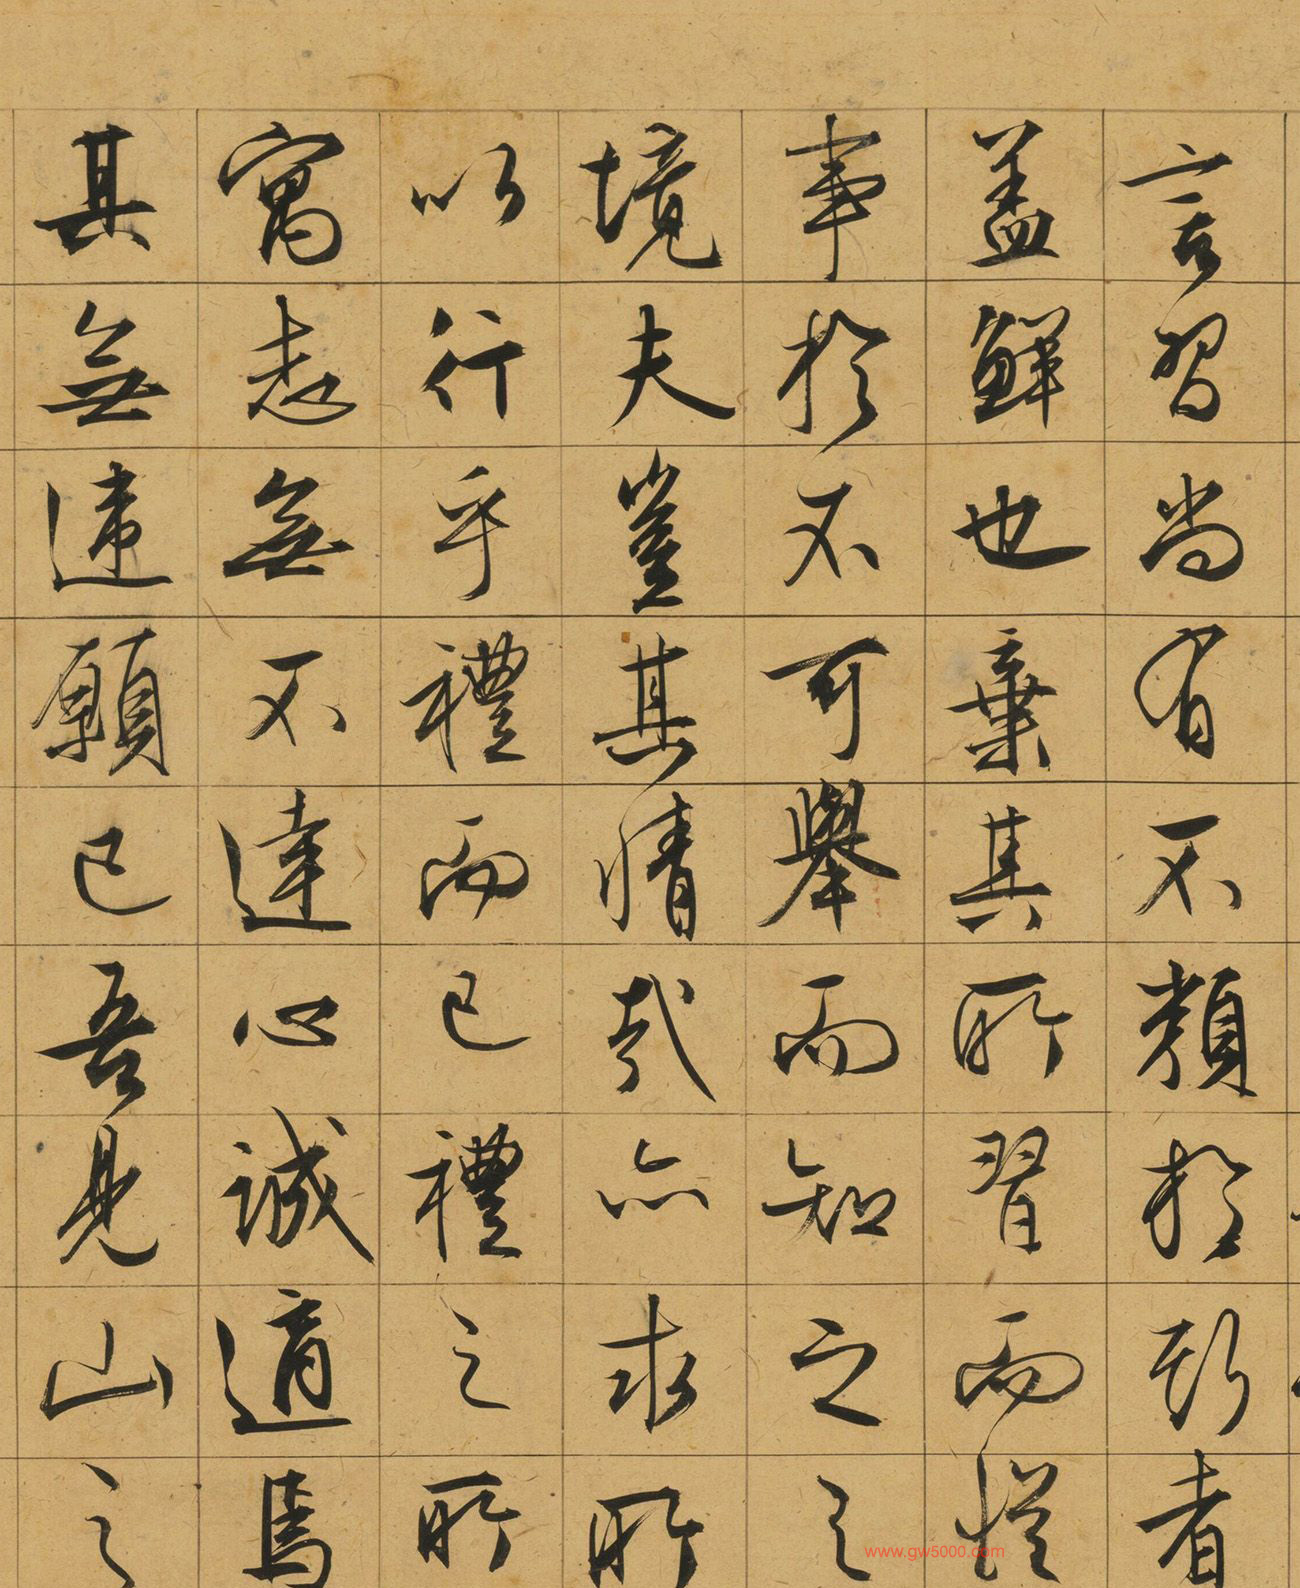 言習尚有不類於斯者
蓋鮮也棄其所習而從
事於不可舉而知之之
境夫豈其情哉亦求所
以行乎禮而已禮之所
寓志無不達心誠適焉
其無違願已吾見山之
www.gw5000.com